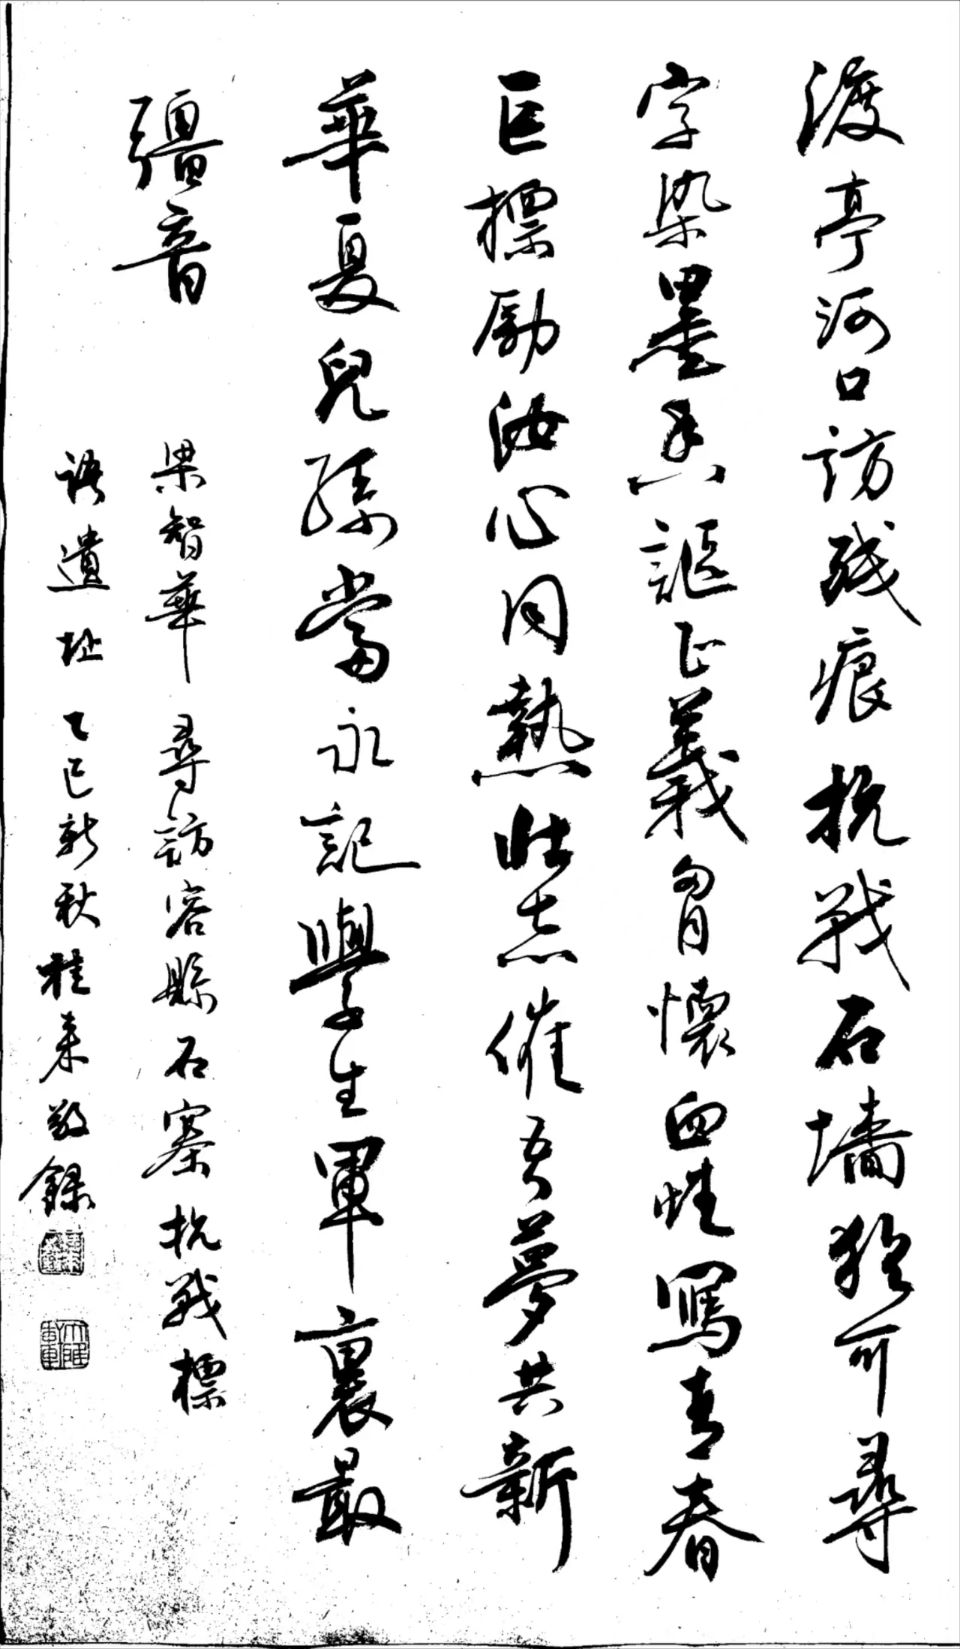 渡亭河口訪殘痕抗戰石墻猶可尋
字染墨香謳正義胷懷血性寫青春
巨標勵汝心同熱壯志催吾夢共新
華夏兒孫當永記學生軍裏最
彊音
梁智華 尋訪容縣石寨抗戰標
語遺址 乙巳新秋桂来敬錄